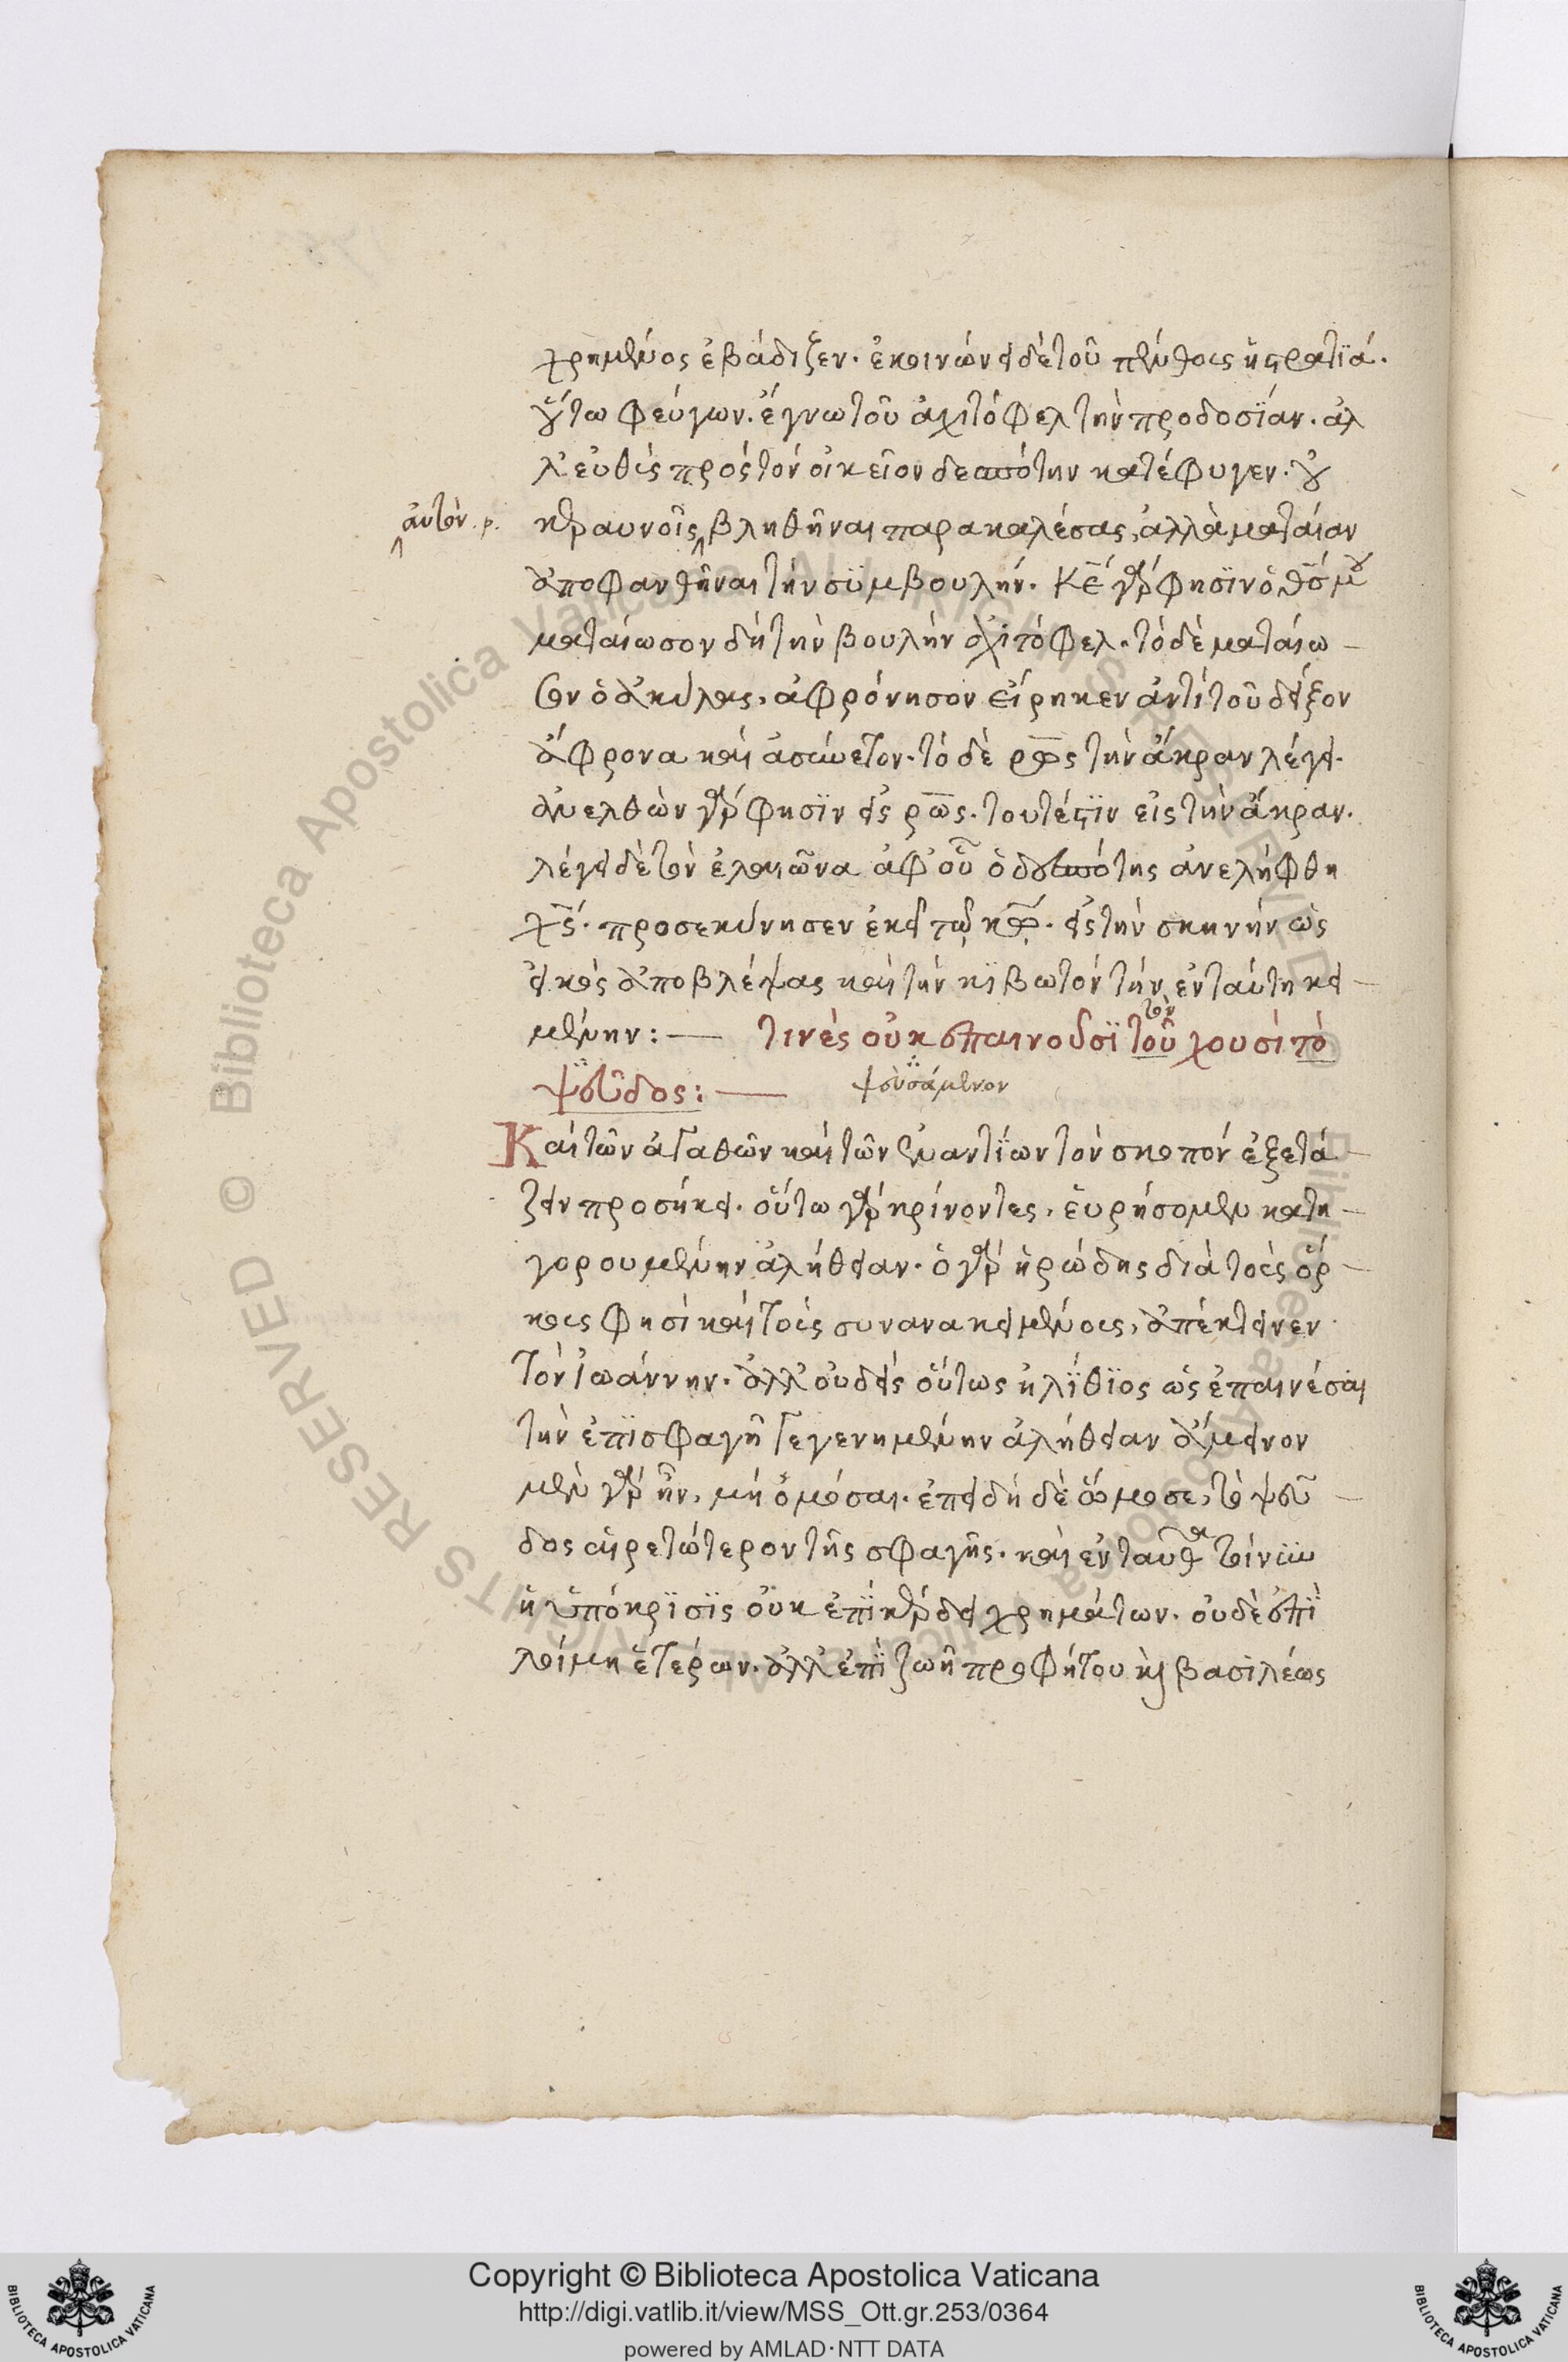 χρημένος ἐβάδιζεν. ἐκοινώνει δὲ τοῦ πένθους ἡ στρατϊά.
οὕτω φεύγων. ἔγνω τοῦ ἀχιτόφελ τὴν προδοσίαν. ἀλ
λ' εὐθὺς πρὸς τὸν οἰκεῖον δεσπότην κατέφυγεν. οὐ
αὐτὸν.
κεραυνοῖς βληθῆναι παρακαλέσας, ἀλλὰ ματαίαν
ἀποφανθῆναι τὴν συμβουλήν. κε̄ γάρ φησϊν ὁ θς̄ μου
ματαίωσον δὴ τὴν βουλὴν ἀχιτόφελ. τὸ δὲ ματαίω –
σον ὁ ἀκύλας, ἀφρόνησον εἴρηκεν ἀντὶ τοῦ δεῖξον
ἄφρονα καὶ ἀσύνετον. τὸ δὲ ρως τὴν ἄκραν λέγει.
ἀνελθὼν γάρ φησϊν εἰς ρως. τουτέστϊν εἰς τὴν ἄκραν.
λέγει δὲ τὸν ἐλαιῶνα ἀφ' οὗ ὁ δεσπότης ἀνελήφθη
χς̄. προσεκύνησεν ἐκεῖ τῷ κω̄. εἰς τὴν σκηνὴν ὡς
εἰκὸς ἀποβλέψας καὶ τὴν κιβωτὸν τὴν ἐν ταύτη κει –
μένην: — τινὲς οὐκ ἐπαινοῦσϊ τοῦ χουσὶ τὸ
τὸν
ψεῦδος: — ψευσάμενον
Καὶ τῶν ἀγαθῶν καὶ τῶν ἐναντίων τὸν σκοπὸν ἐξετά –
ζειν προσήκει. οὕτω γὰρ κρίνοντες, εὑρήσομεν κατη –
γορουμένην ἀλήθειαν. ὁ γὰρ ἡρώδης διὰ τοὺς ὅρ –
κους φησὶ καὶ τοὺς συνανακειμένους, ἀπέκτεινεν
τὸν ἰωάννην. ἀλλ' οὐδεὶς οὕτως ἠλίθϊος ὡς ἐπαινέσαι
τὴν ἐπὶ σφαγῆ γεγενημένην ἀλήθειαν ἄμεινον
μὲν γὰρ ἦν, μὴ ὀμόσαι. ἐπειδὴ δὲ ὤμοσε, τὸ ψεῦ –
δος αἱρετώτερον τῆς σφαγῆς. καὶ ἐνταῦθα τοίνυν
ἡ ὑπόκρϊσϊς οὐκ ἐπὶ κέρδει χρημάτων. οὐδὲ ἐπὶ
λύμη ἑτέρων. ἀλλ' ἐπὶ ζωῆ προφήτου καὶ βασιλέως
Copyright © Biblioteca Apostolica Vaticana
http://digi.vatlib.it/view/MSS_Ott.gr.253/0364
powered by AMLAD·NTT DATA